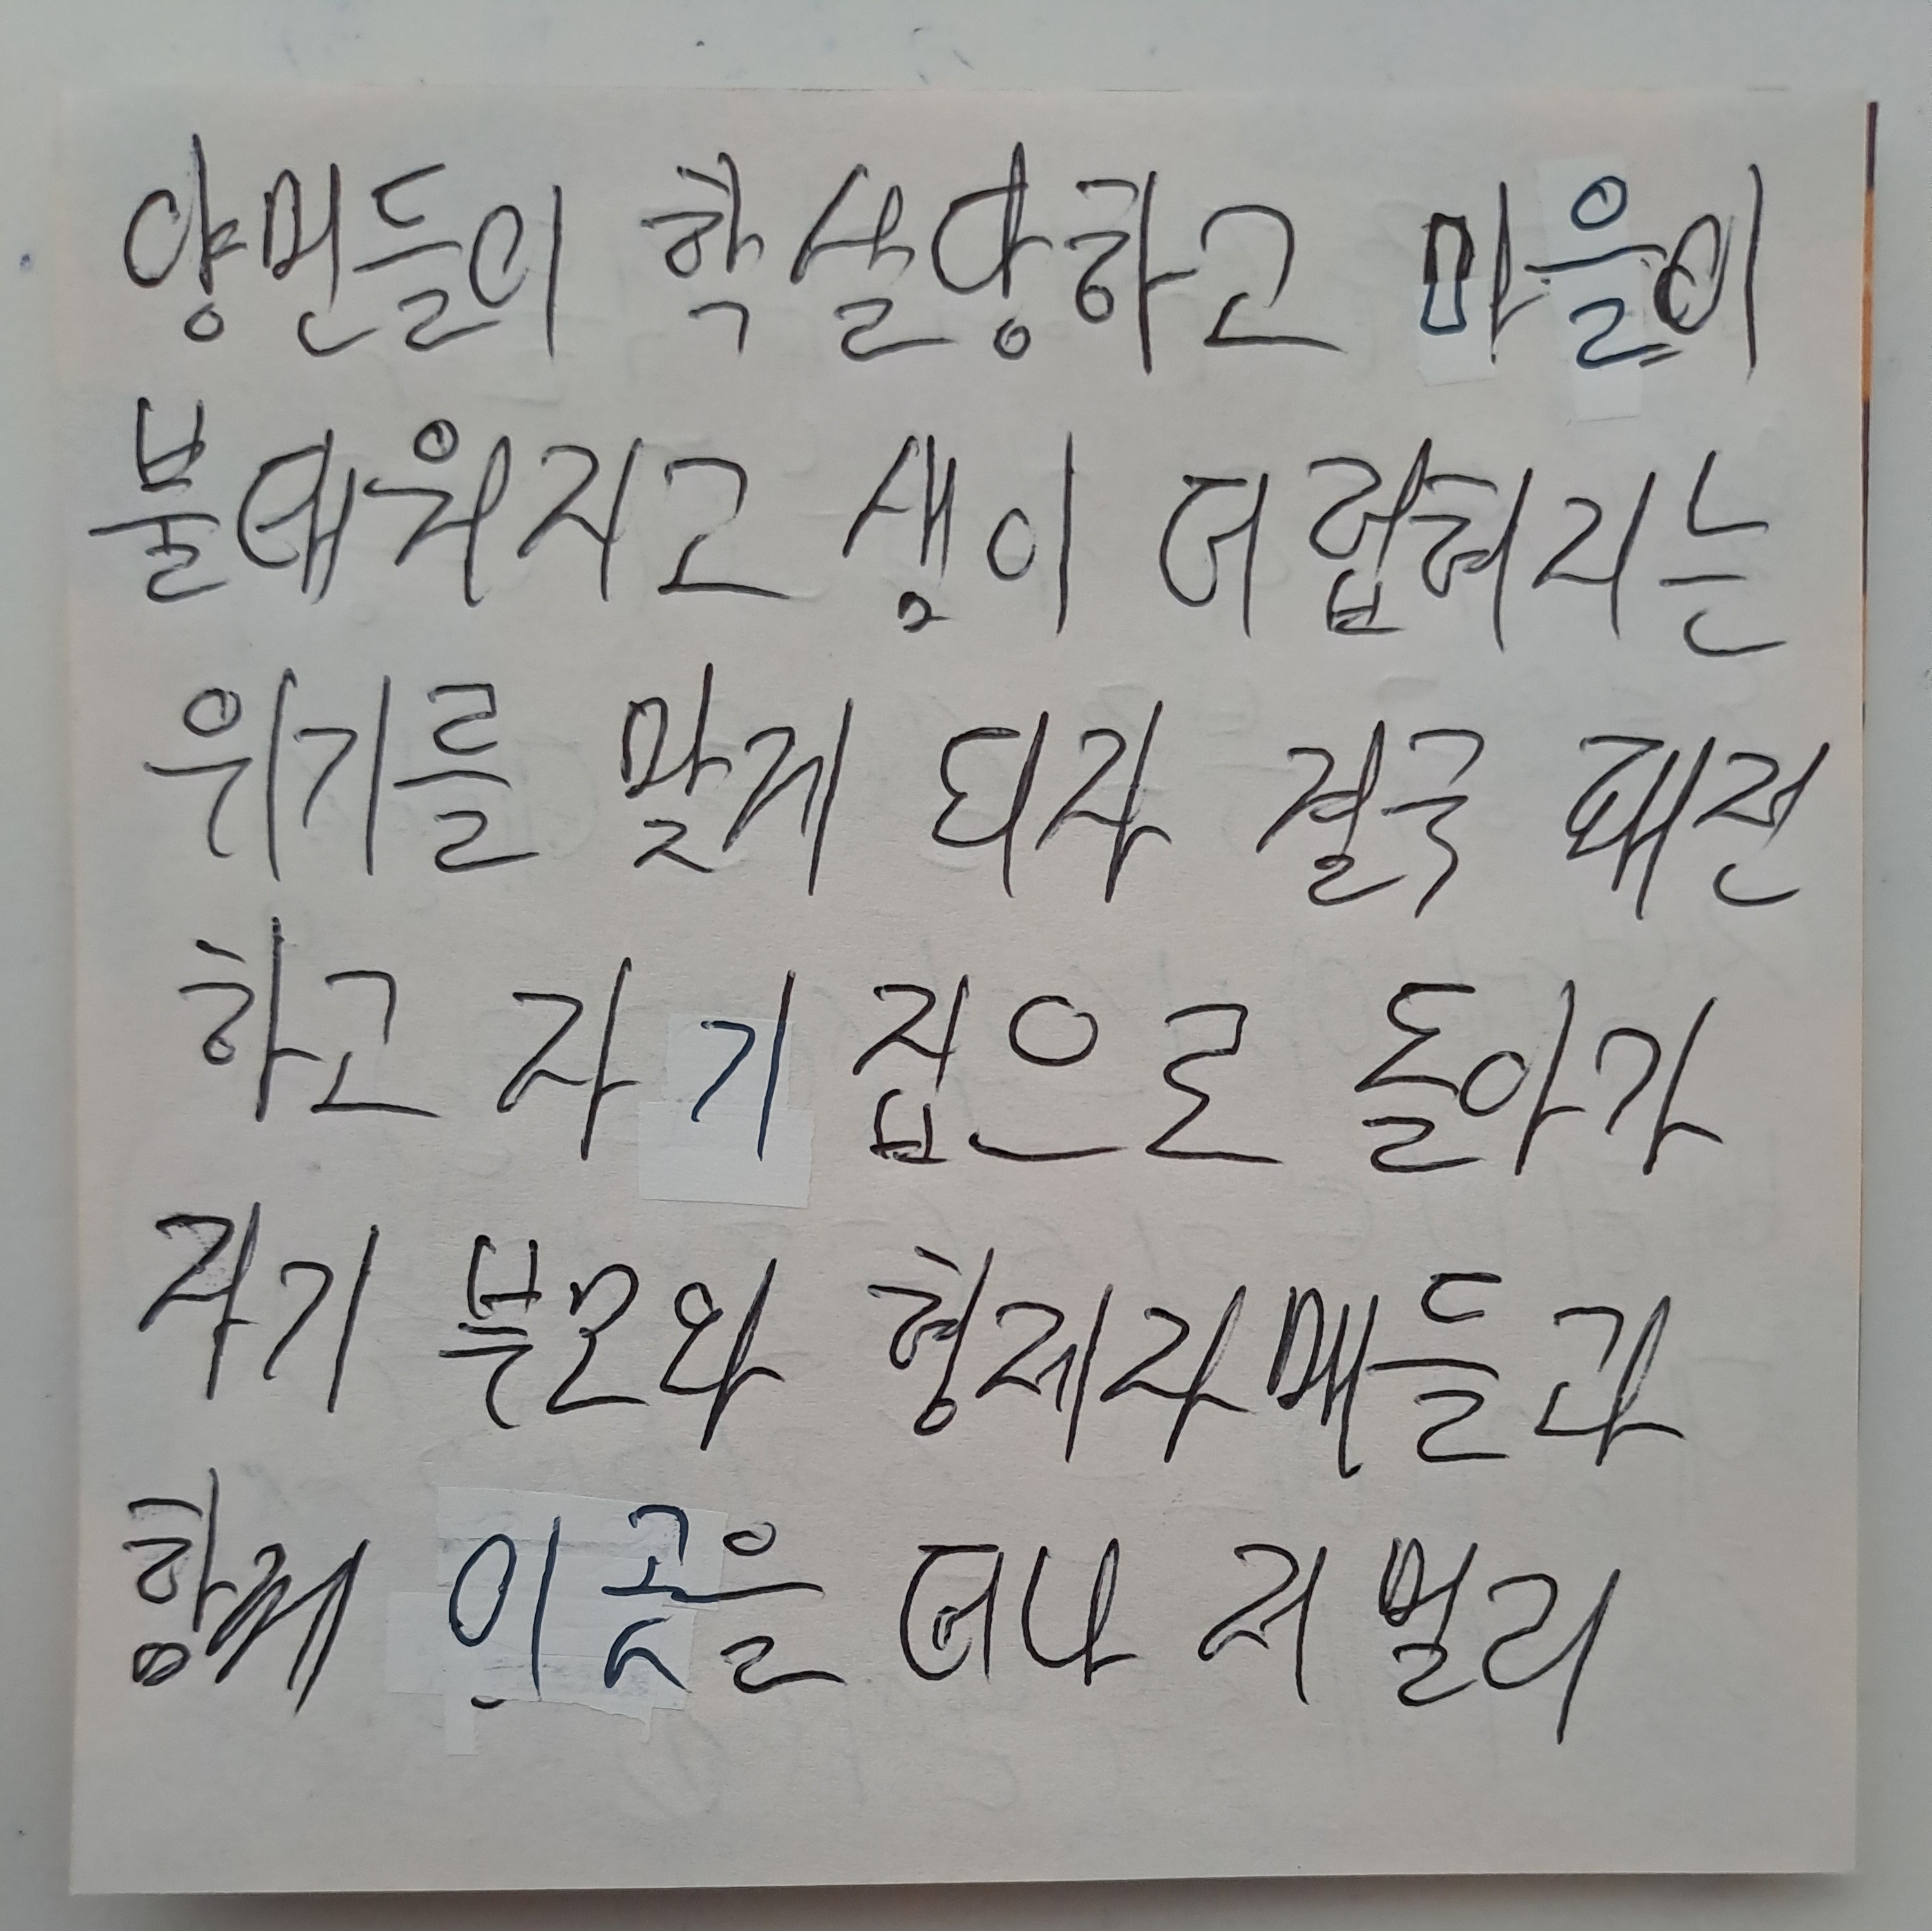 양민들이 학살당하고 마을이
불태워지고 샘이 더럽혀지는
위기를 맞게 되자 결국 패전
하고 자기 집으로 돌아가
자기 부모와 형제자매들과
함께 이곳을 떠나 저 멀리